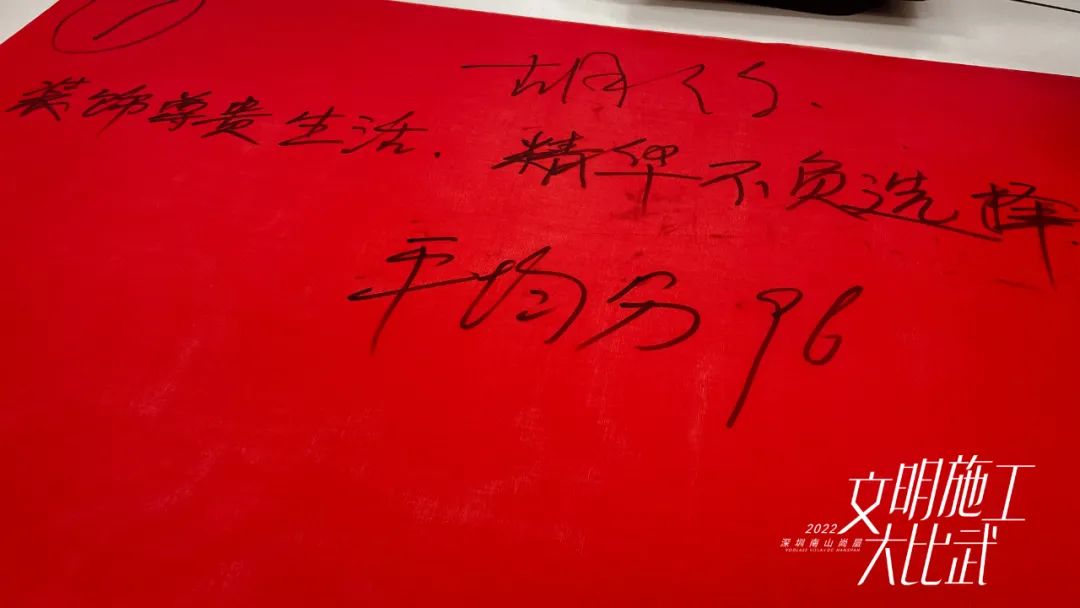 ①
装饰尊贵生活.精华不负选择.
平均分96
2022
深圳南山尚层
文明施工
大比武